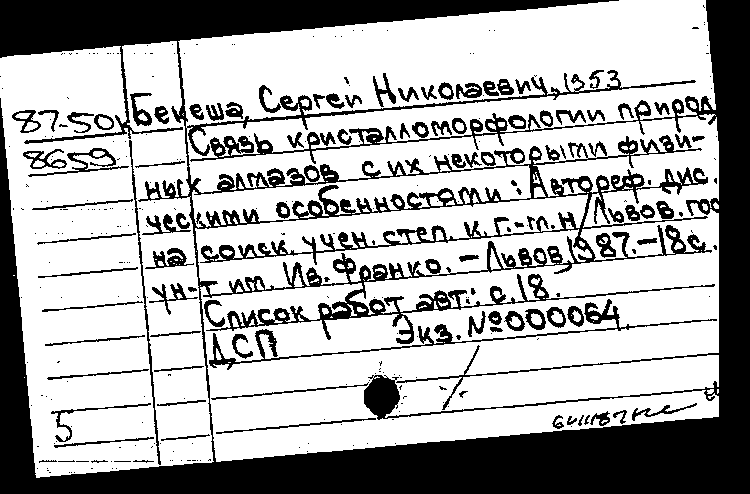 87-50к Бекеша, Сергей Николаевич, 1953
8659 Связь кристалломорфологии природ
ных алмазов с их некоторыми физи-
ческими особенностями: Автореф. дис.
на соиск. учен. степ. к. г.-м. н / Львов. гос
ун-т им. Ив. Франко. - Львов, 1987. - 18 с.
Список работ авт.: с. 18.
ДСП Экз. № 000064
5